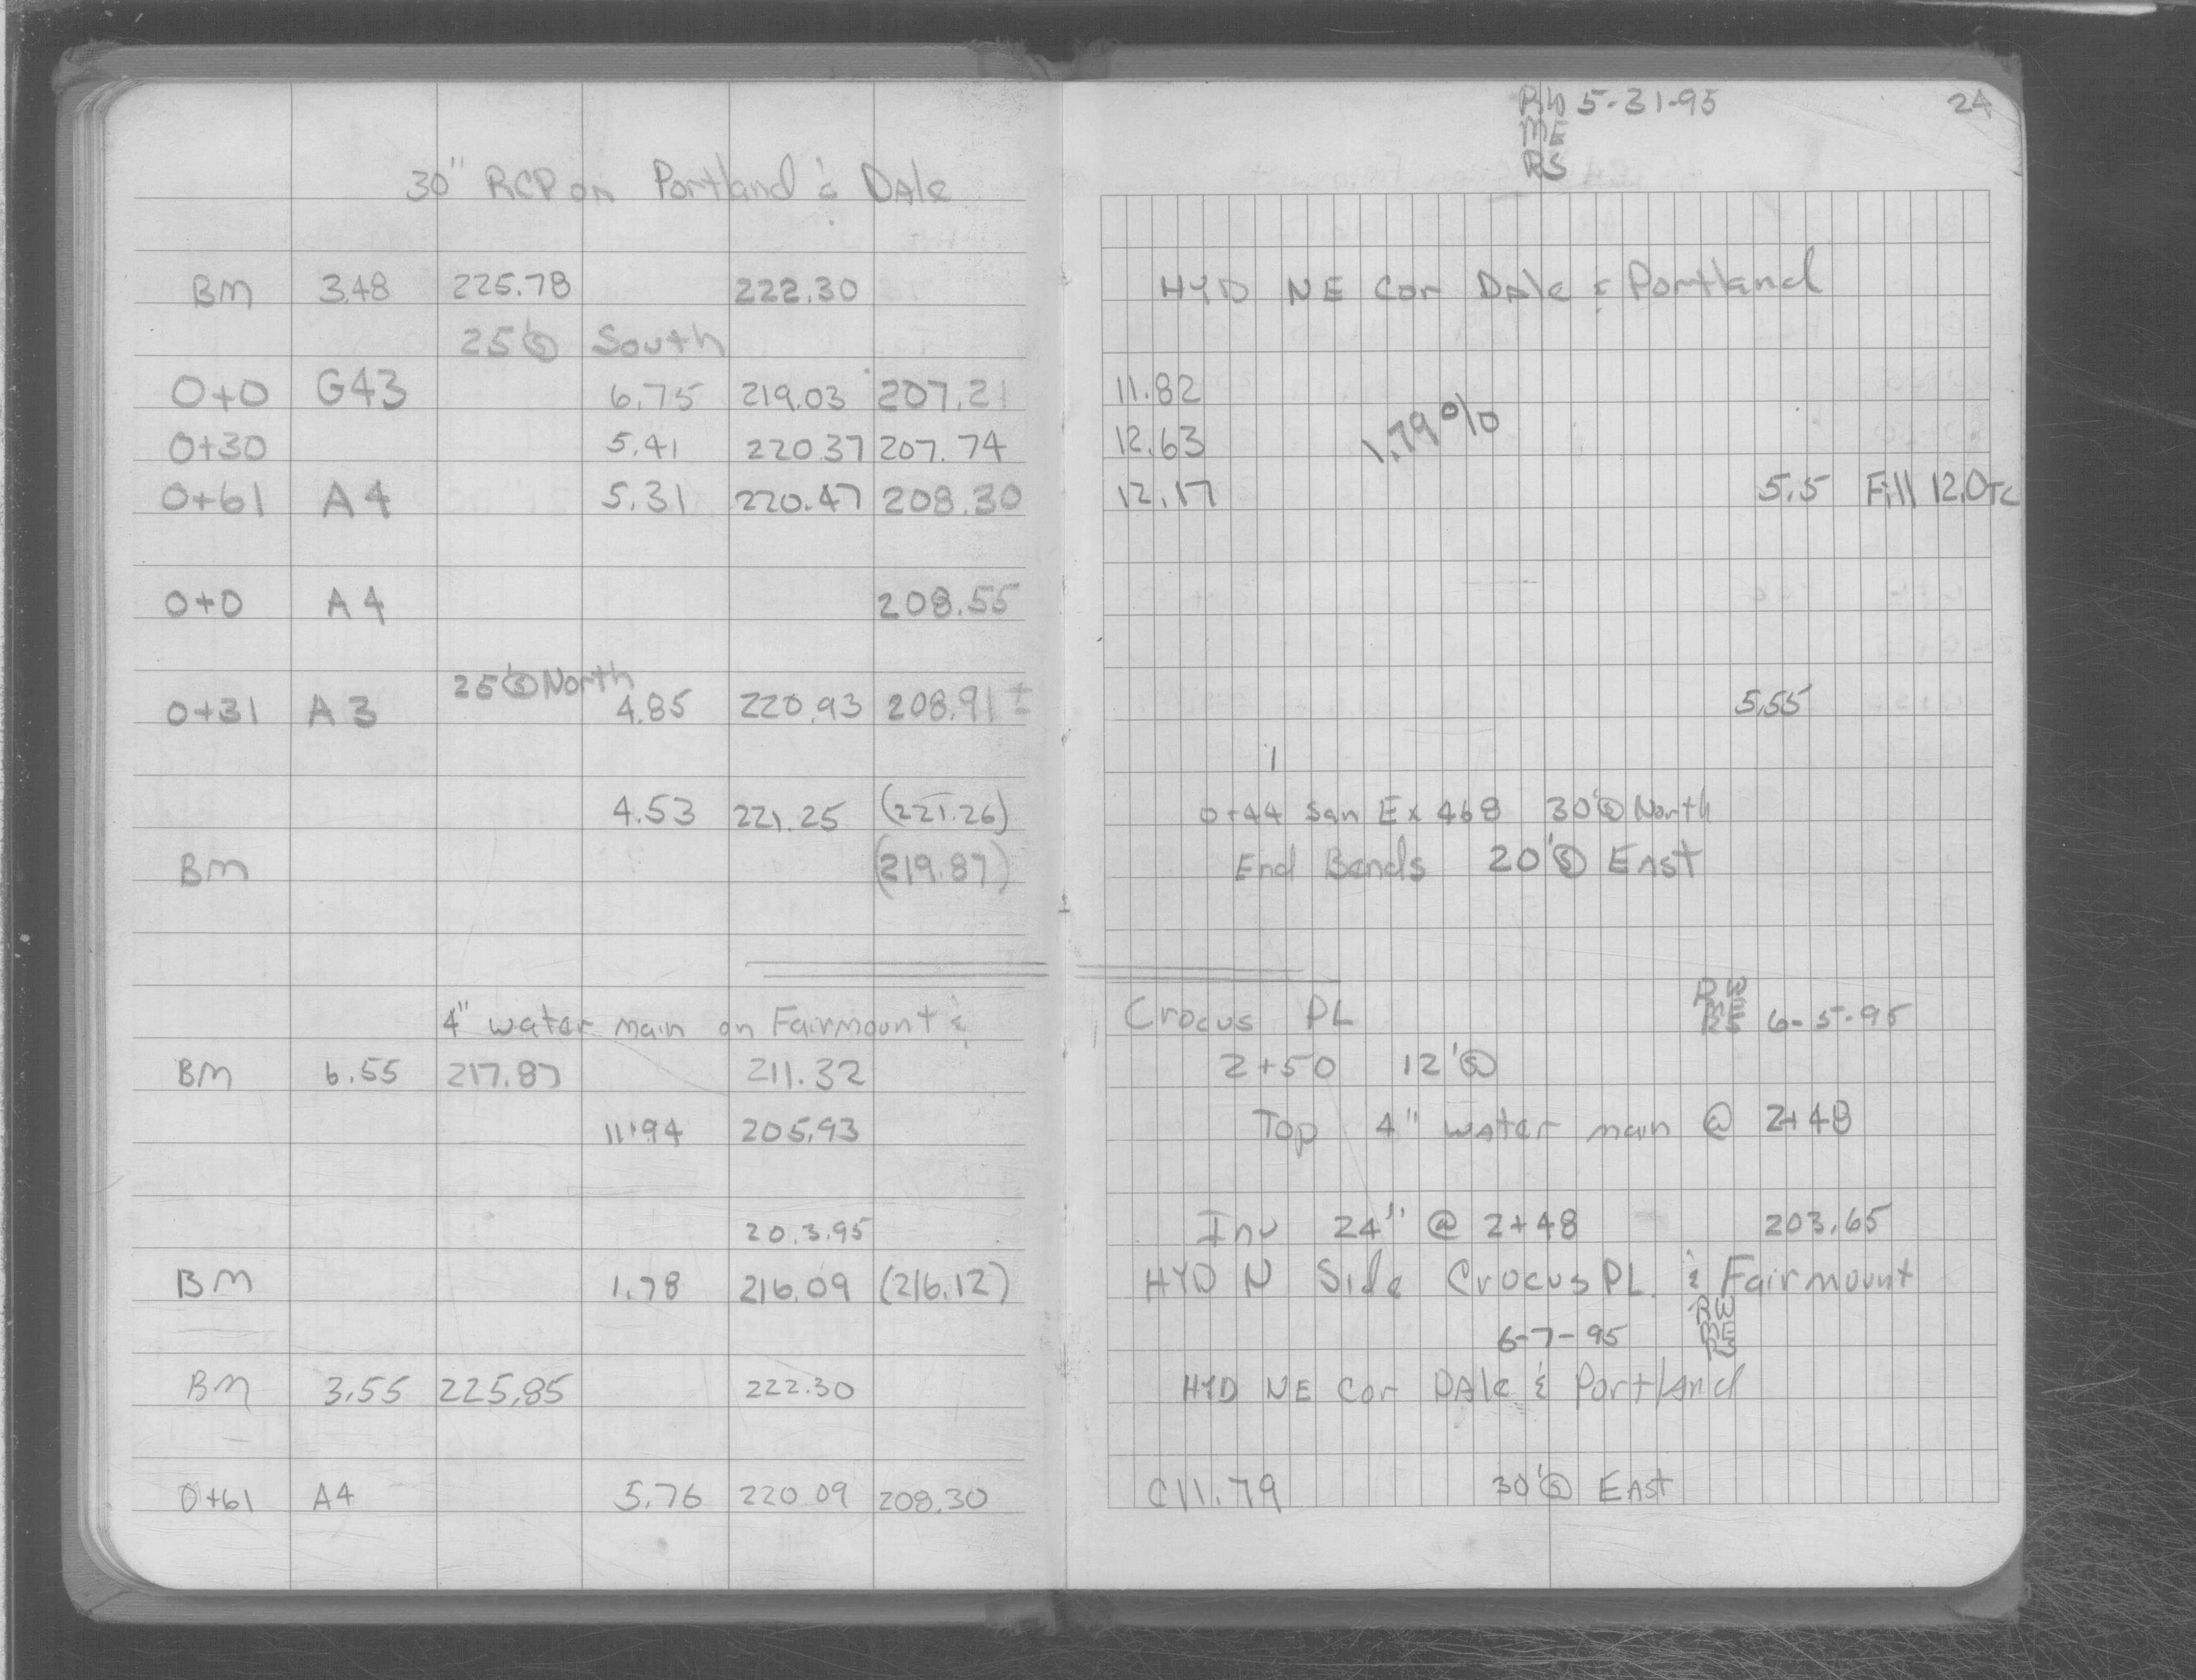 30" RCP on Portland & Dale
BM 3.48 225.78 222.30
25' Ⓢ South
0+0 G43 6.75 219.03 207.21
0+30 5.41 220.37 207.74
0+61 A4 5.31 220.47 208.30
0+0 A4 208.55
25' Ⓢ North
0+31 A3 4.85 220.93 208.91 ±
4.53 221.25 (221.26)
BM (219.87)
4" water main on Fairmount &
BM 6.55 217.87 211.32
11.94 205.93
203.95
BM 1.78 216.09 (216.12)
BM 3.55 225.85 222.30
0+61 A4 5.76 220.09 208.30
RW 5-31-95 24
ME
RS
HYD NE Cor Dale & Portland
11.82
12.63 1.79%
12.17 5.5 Fill 12.0 TC
5.55
1
0+44 San Ex 468 30' Ⓢ North
End Bends 20' Ⓢ East
Crocus PL RW ME RS 6-5-95
2+50 12' Ⓢ
Top 4" water main @ 2+48
Inv 24" @ 2+48 203.65
HYD N Side Crocus PL. & Fairmount
6-7-95 RW
HYD NE Cor Dale & Portland
C11.79 30' Ⓢ East